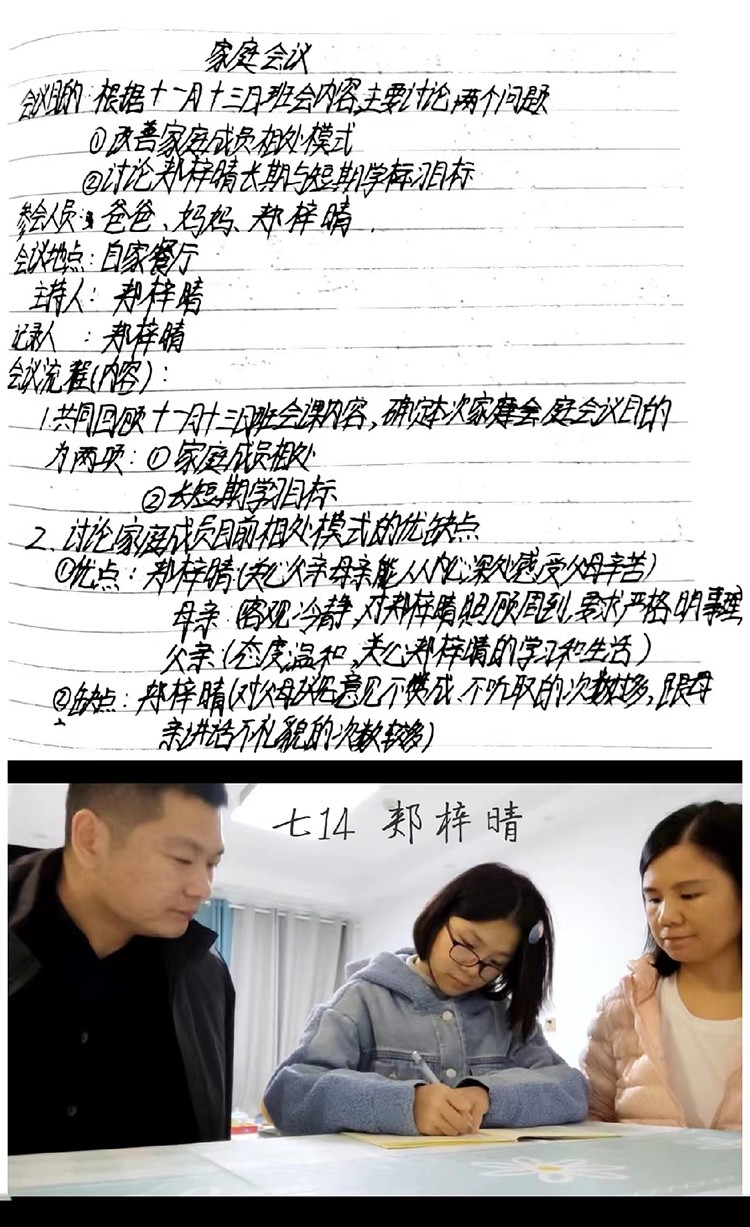 家庭会议
会议目的：根据十一月十三日班会内容，主要讨论两个问题
①改善家庭成员相处模式
②讨论郑梓晴长期与短期学标习目标
参会人员：爸爸、妈妈、郑梓晴．
会议地点：自家餐厅
主持人：郑梓晴
记录人：郑梓晴
会议流程(内容)：
1.共同回顾十一月十三日班会课内容，确定本次家庭会庭会议目的
为两项：①家庭成员相处
②长短期学习目标
2.讨论家庭成员目前相处模式的优缺点
①优点：郑梓晴(关心父亲母亲能从内心深处感受父母辛苦)
母亲(客观冷静，对郑梓晴照顾周到，要求严格明事理
父亲(态度温和，关心郑梓晴的学习和生活)
②缺点：郑梓晴(对父母的意见不赞成、不听取的次数较多，跟母
亲讲话不礼貌的次数较多)
七14 郑梓晴